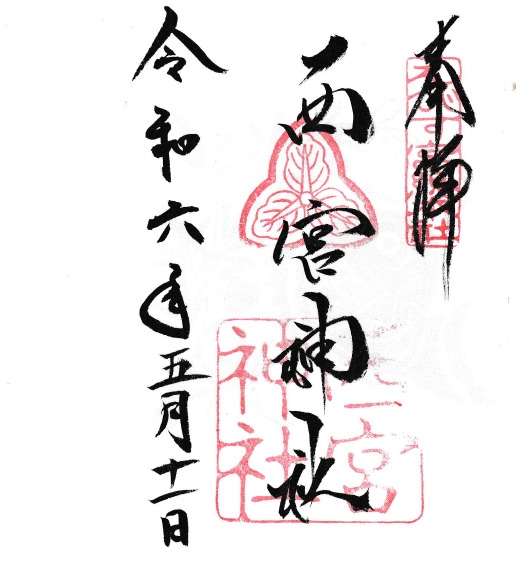 奉拝
西宮神社
令和六年五月十一日
神社
宮